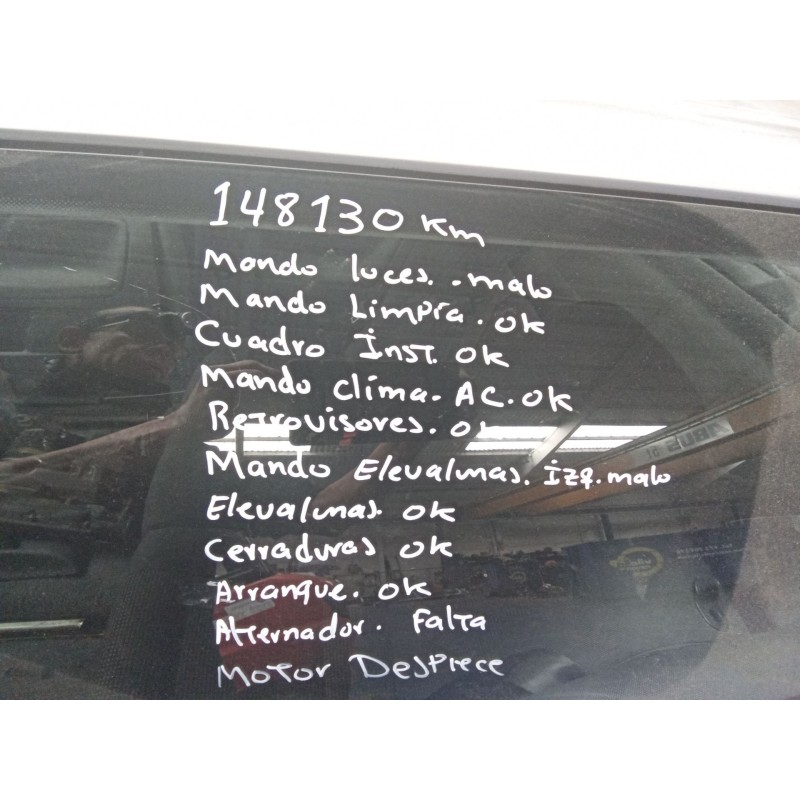 148130 Km
Mando luces. .malo
Mando Limpia. ok
Cuadro Inst. OK
Mando clima. AC. OK
Retrovisores. OK
Mando Elevalunas. Izq. malo
Elevalunas OK
Cerraduras OK
Arranque. OK
Alternador. Falta
Motor Despiece